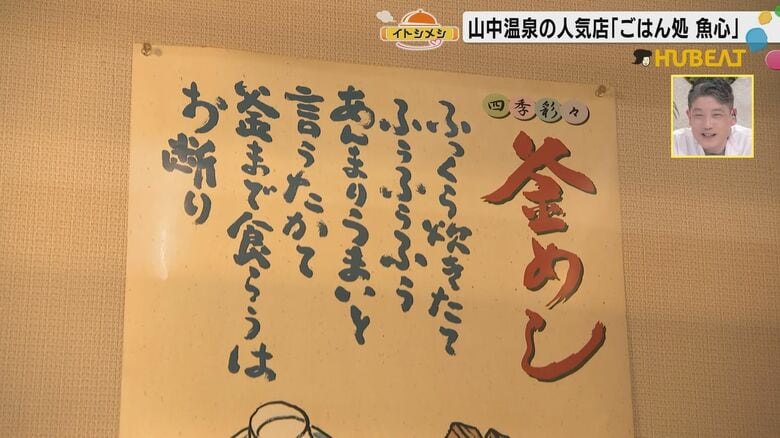 イトシメシ
山中温泉の人気店「ごはん処 魚心」
HUBEAT
四季彩々
釜めし
ふっくら炊きたて
ふぅふぅふぅ
あんまりうまいと
言うたかて
釜まで食らうは
お断り